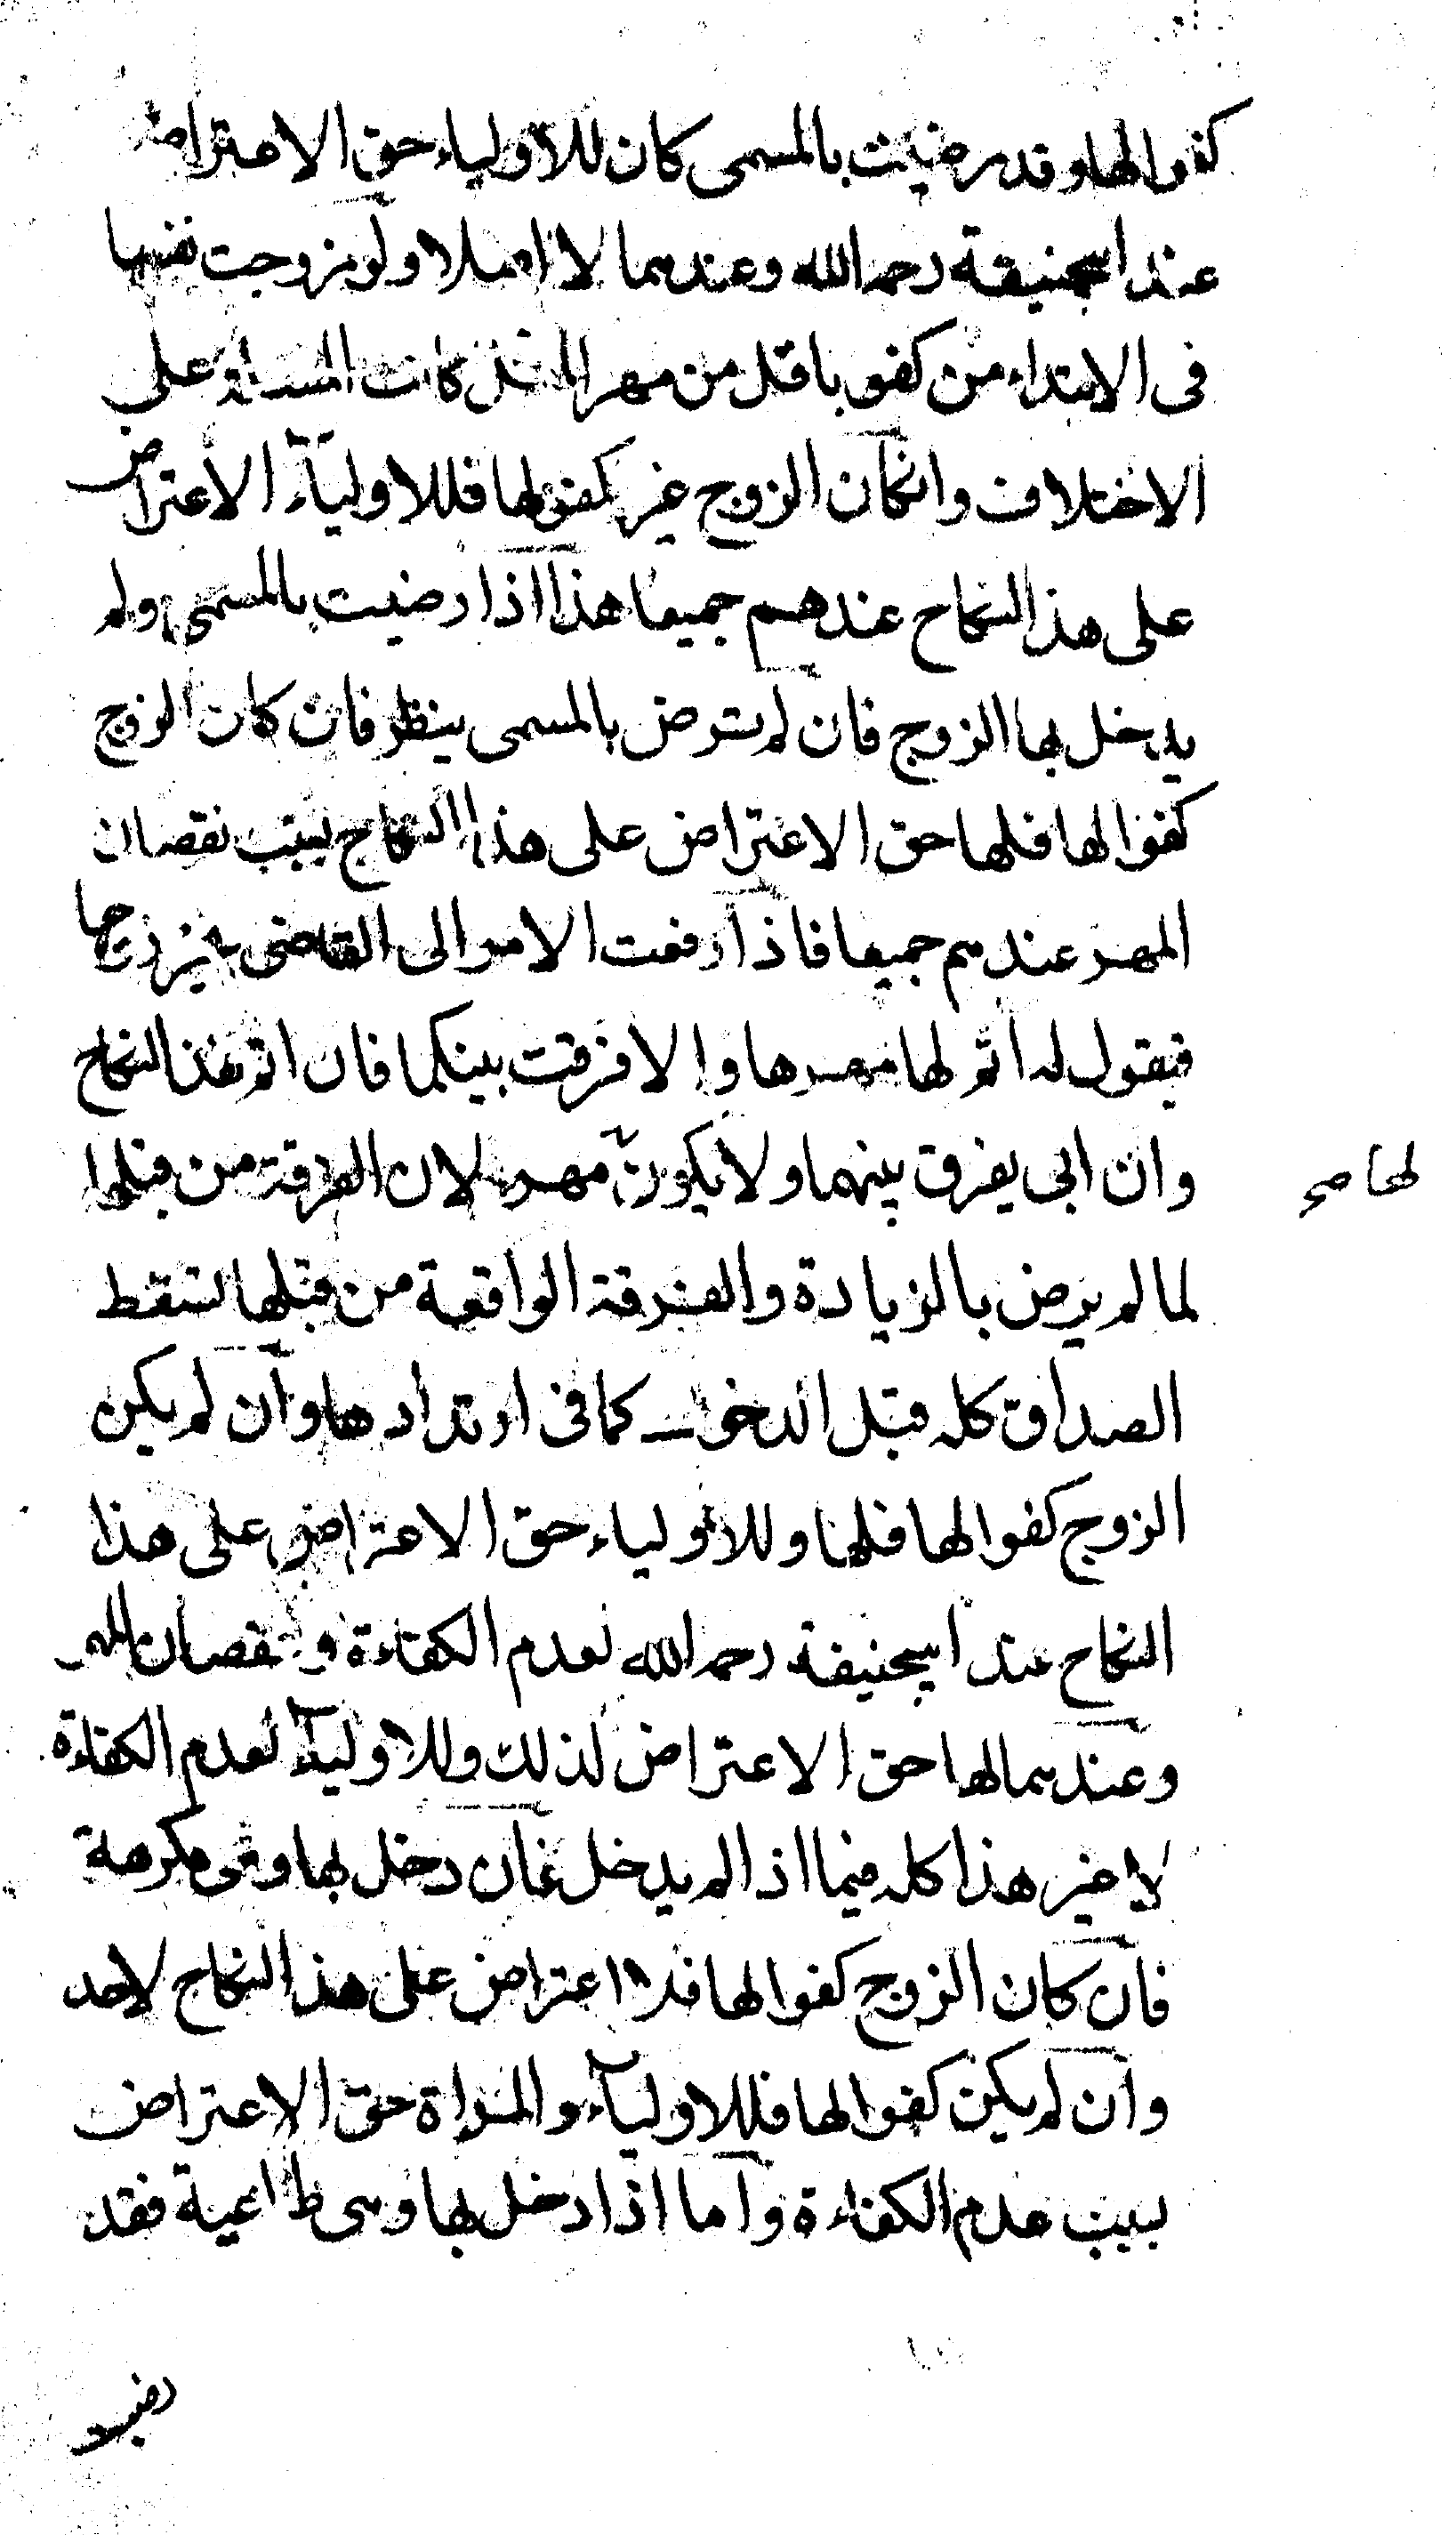 كفوا لها وقد رضيت بالمسمى كان للاولياء حق الاعتراض
عند ابيحنيفة رحمه الله وعندهما لا اصلا ولو زوجت نفسها
فى الابتداء من كفو باقل من مهر المثل كانت المسئلة على
الاختلاف وانكان الزوج غير كفو لها فللاولياء الاعتراض
على هذا النكاح عندهم جميعا هذا اذا رضيت بالمسمى ولم
يدخل بها الزوج فان لم ترض بالمسمى ينظر فان كان الزوج
كفوا لها فلها حق الاعتراض على هذا النكاح بسبب نقصان
المهر عندهم جميعا فاذا رفعت الامر الى القاضى يخير زوجها
فيقول له اتم لها مهرها والا فرقت بينكما فان اتم نفذ النكاح
وان ابى يفرق بينهما ولا يكون مهر لان الفرقة من قبلها
لها صح
لما لم يرض بالزيادة والفرقة الواقعة من قبلها تسقط
الصداق كله قبل الدخول كما فى ارتدادها وان لم يكن
الزوج كفوا لها فلها وللاولياء حق الاعتراض على هذا
النكاح عند ابيحنيفة رحمه الله لعدم الكفاءة ونقصان المهر
وعندهما لها حق الاعتراض لذلك وللاولياء لعدم الكفاءة
لا غير هذا كله فيما اذا لم يدخل فان دخل بها وهى مكرهة
فان كان الزوج كفوا لها فلا اعتراض على هذا النكاح لاحد
وان لم يكن كفوا لها فللاولياء والمراة حق الاعتراض
بسبب عدم الكفاءة واما اذا دخل بها وهى طاعية فقد
رضيت